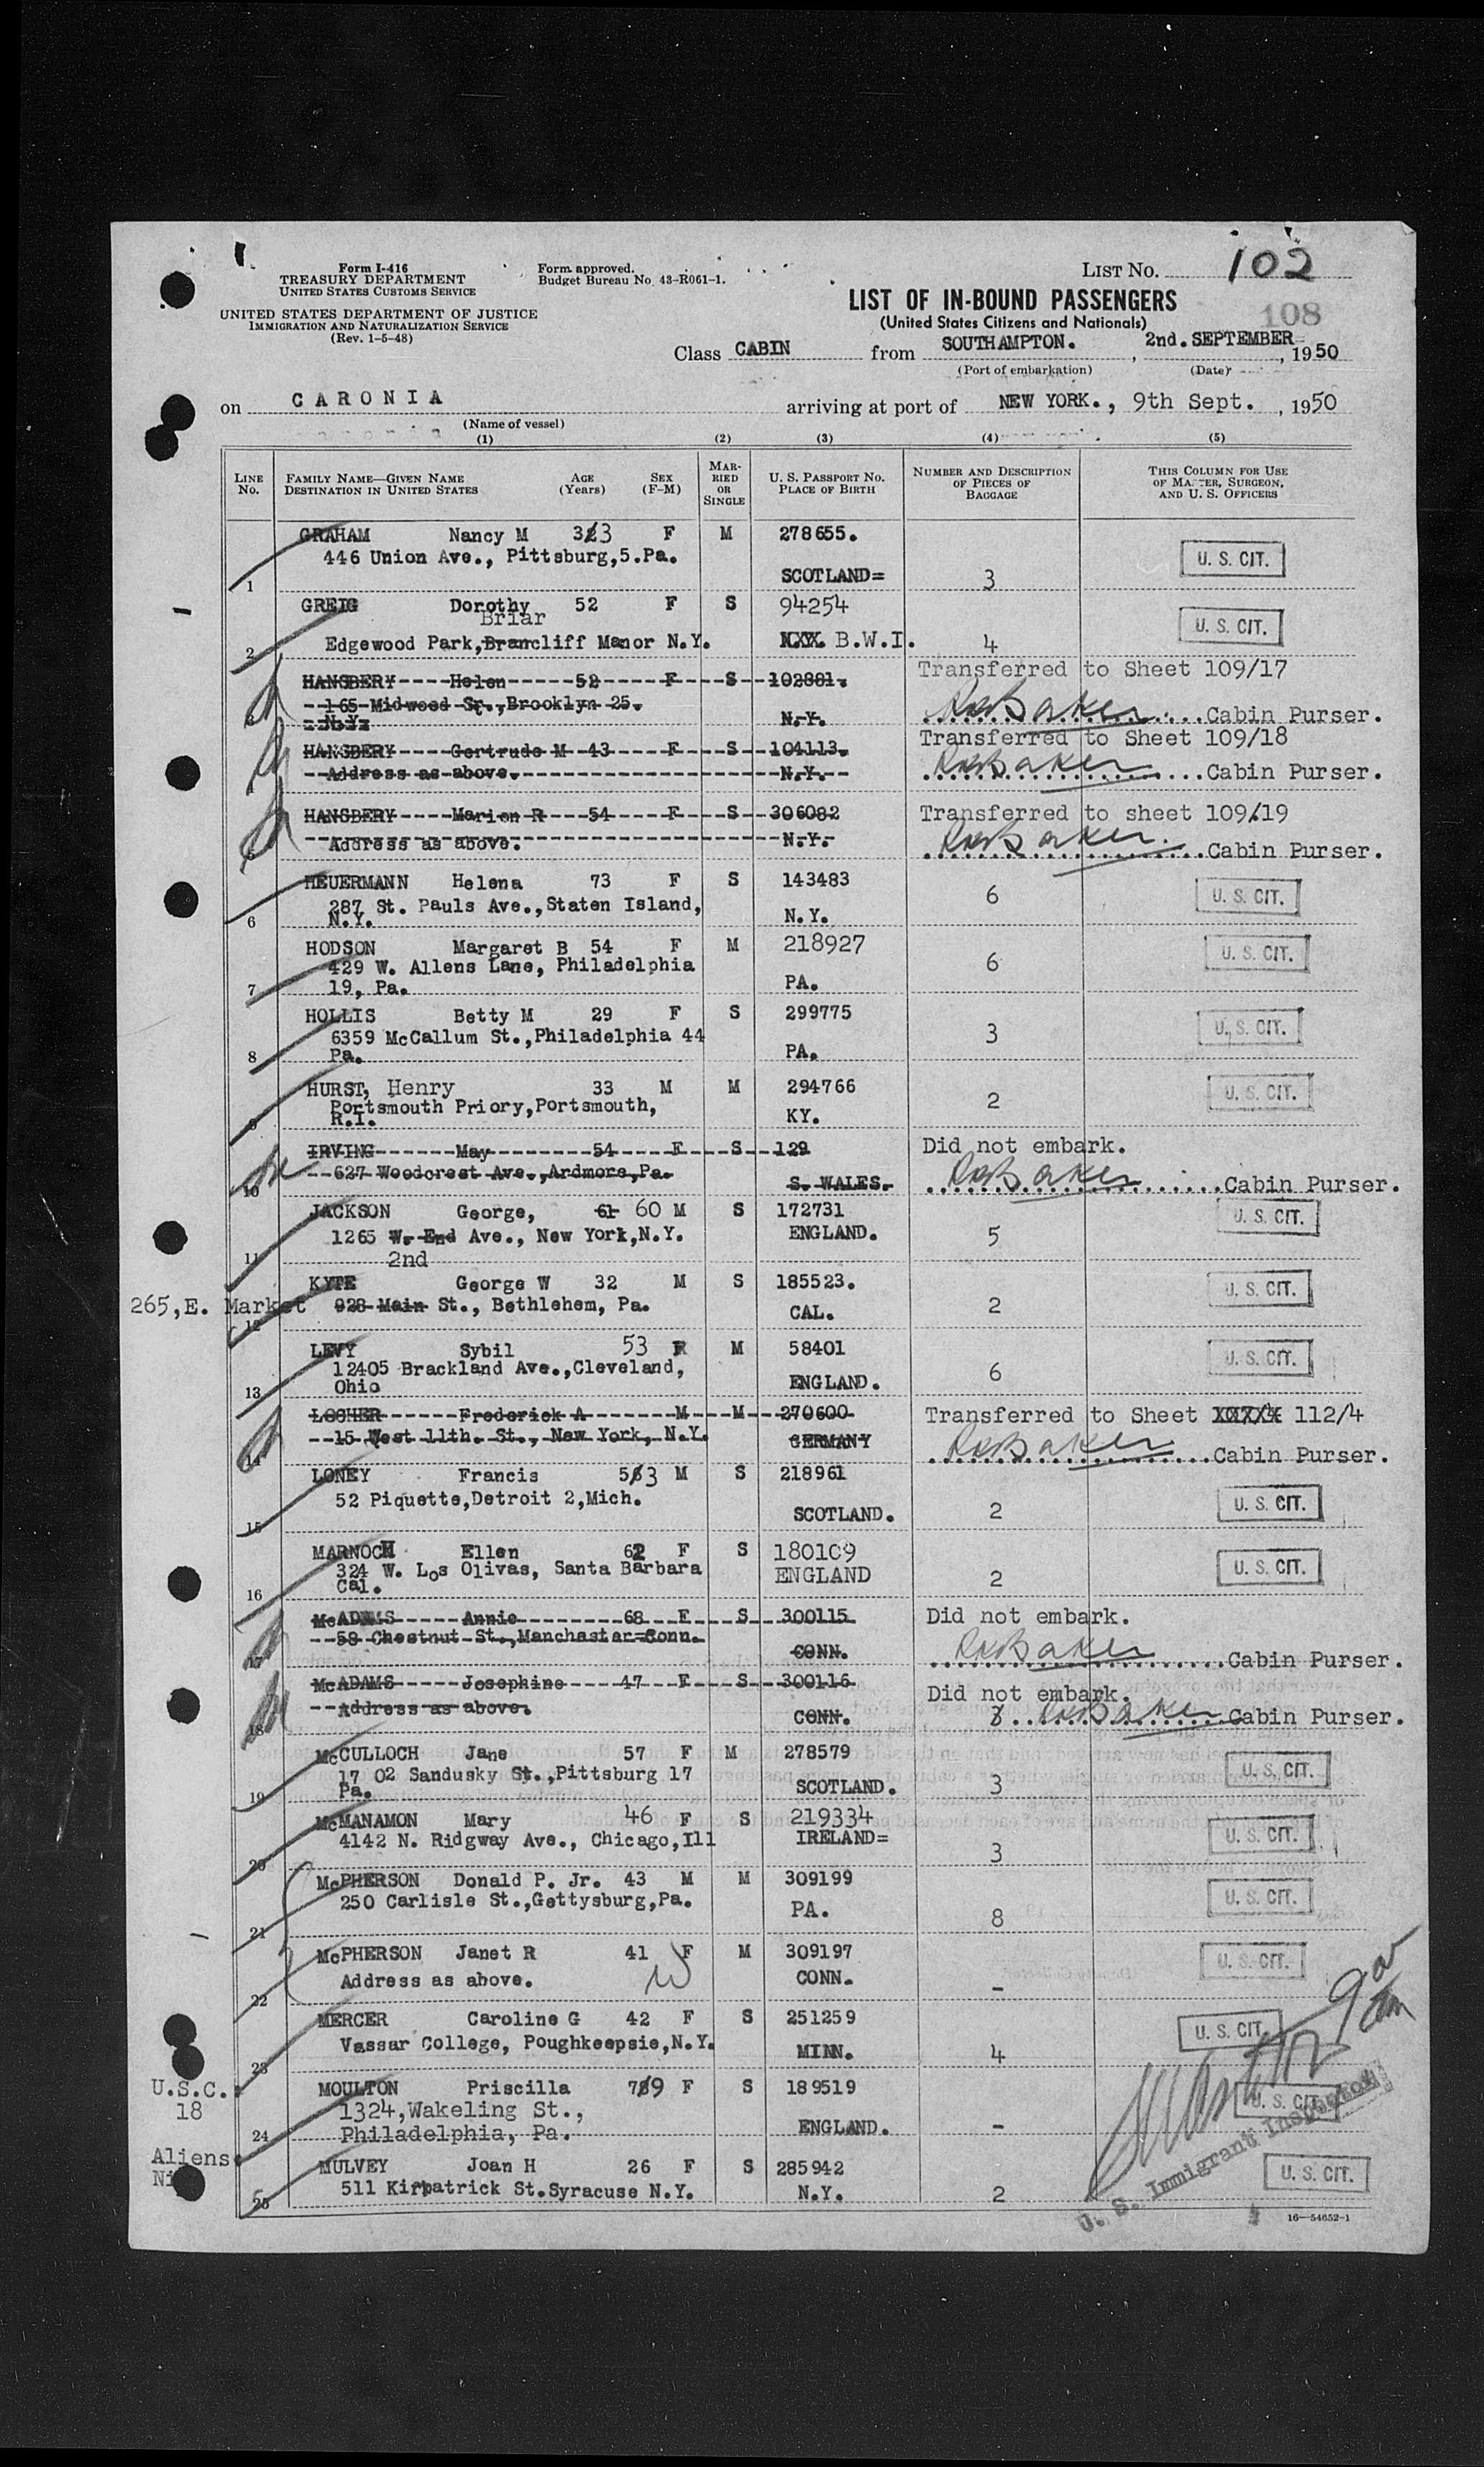 Form I-416
TREASURY DEPARTMENT
UNITED STATES CUSTOMS SERVICE
UNITED STATES DEPARTMENT OF JUSTICE
IMMIGRATION AND NATURALIZATION SERVICE
(Rev. 1-5-48)
Form approved.
Budget Bureau No. 43-R061-1.
LIST NO. 102
LIST OF IN-BOUND PASSENGERS
(United States Citizens and Nationals)
108
Class CABIN from SOUTHAMPTON. , 2nd. SEPTEMBER , 1950
(Port of embarkation) (Date)
on CARONIA arriving at port of NEW YORK. , 9th Sept. , 1950
(Name of vessel)
(1) (2) (3) (4) (5)
LINE No. FAMILY NAME—GIVEN NAME DESTINATION IN UNITED STATES AGE (Years) SEX (F-M) MARRIED OR SINGLE U. S. PASSPORT No. PLACE OF BIRTH NUMBER AND DESCRIPTION OF PIECES OF BAGGAGE THIS COLUMN FOR USE OF MASTER, SURGEON, AND U. S. OFFICERS
GRAHAM Nancy M 33 F M 278655.
446 Union Ave., Pittsburg,5.Pa. U. S. CIT.
1 SCOTLAND= 3
GREIG Dorothy 52 F S 94254
Briar U. S. CIT.
2 Edgewood Park,Brancliff Manor N.Y. XXX. B.W.I. 4
HANSBERY Helen 52 F S 102881. Transferred to Sheet 109/17
165 Midwood St.,Brooklyn 25.
3 N.Y. N.Y. RWBaker Cabin Purser.
HANSBERY Gertrude M 43 F S 104113. Transferred to Sheet 109/18
4 Address as above. N.Y. RWBaker Cabin Purser.
HANSBERY Marion R 54 F S 306082 Transferred to sheet 109/19
5 Address as above. N.Y. RWBaker Cabin Purser.
HEUERMANN Helena 73 F S 143483 6 U. S. CIT.
287 St. Pauls Ave.,Staten Island,
6 N.Y. N.Y.
HODSON Margaret B 54 F M 218927 U. S. CIT.
429 W. Allens Lane, Philadelphia 6
7 19, Pa. PA.
HOLLIS Betty M 29 F S 299775 U. S. CIT.
6359 McCallum St.,Philadelphia 44 3
8 Pa. PA.
HURST, Henry 33 M M 294766 U. S. CIT.
Portsmouth Priory,Portsmouth, 2
9 R.I. KY.
IRVING May 54 F S 129 Did not embark.
10 627 Woodcrest Ave.,Ardmore,Pa. S. WALES. RWBaker Cabin Purser.
JACKSON George, 61 60 M S 172731 U. S. CIT.
1265 W. End Ave., New York,N.Y. ENGLAND. 5
11 2nd
KYTE George W 32 M S 185523. U. S. CIT.
265,E. Market 928 Main St., Bethlehem, Pa. CAL. 2
12
LEVY Sybil 53 F M 58401 U. S. CIT.
12405 Brackland Ave.,Cleveland, 6
13 Ohio ENGLAND.
LOCHER Frederick A M M 270600 Transferred to Sheet 112/4
14 15 West 11th. St., New York, N.Y. GERMANY RWBaker Cabin Purser.
LONEY Francis 53 M S 218961 U. S. CIT.
52 Piquette,Detroit 2,Mich.
15 SCOTLAND. 2
MARNOCH Ellen 62 F S 180109 U. S. CIT.
324 W. Los Olivas, Santa Barbara ENGLAND 2
16 Cal.
McADAMS Annie 68 F S 300115 Did not embark.
58 Chestnut St.,Manchastar=Conn.
17 CONN. RWBaker Cabin Purser.
McADAMS Josephine 47 F S 300116 Did not embark.
18 Address as above. CONN. RWBaker Cabin Purser.
McCULLOCH Jane 57 F M 278579 U. S. CIT.
17 02 Sandusky St.,Pittsburg 17
19 Pa. SCOTLAND. 3
McMANAMON Mary 46 F S 219334 U. S. CIT.
4142 N. Ridgway Ave., Chicago,Ill IRELAND=
20 3
McPHERSON Donald P. Jr. 43 M M 309199 U. S. CIT.
250 Carlisle St.,Gettysburg,Pa. PA.
21 8
McPHERSON Janet R 41 F M 309197 U. S. CIT.
Address as above. CONN.
22 -
MERCER Caroline G 42 F S 251259 U. S. CIT.
Vassar College, Poughkeepsie,N.Y. MINN. 4
23
U.S.C. MOULTON Priscilla 79 F S 189519 U. S. CIT.
18 1324,Wakeling St.,
24 Philadelphia, Pa. ENGLAND. -
Aliens MULVEY Joan H 26 F S 285942 U. S. CIT.
25 511 Kirpatrick St.Syracuse N.Y. N.Y. 2
U. S. Immigrant Inspector
16—54652-1